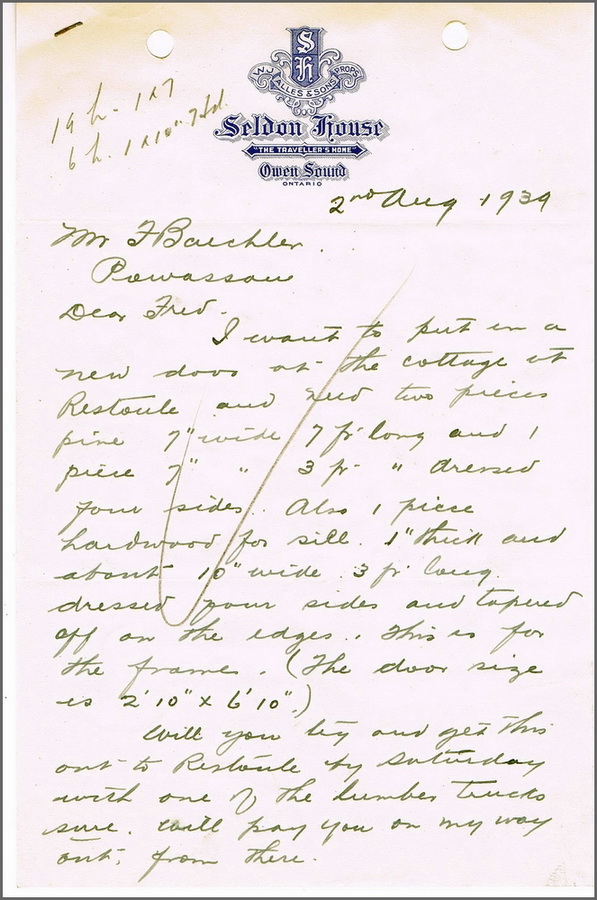 19 h - 1 x 7
6 h. 1 x 10"
S
H
W.J. ALLES & SONS PROPS
Seldon House
"THE TRAVELLER'S HOME"
Owen Sound
ONTARIO
2nd Aug 1939
Mr F Baechler.
Powassan
Dear Fred.
I want to put in a
new door at the cottage at
Restoule and need two pieces
pine 7" wide 7 ft long and 1
piece 7" " 3 ft " dressed
four sides. Also 1 piece
hardwood for sill. 1" thick and
about 10" wide 3 ft long.
dressed four sides and tapered
off on the edges. This is for
the frames. (The door size
is 2' 10" x 6' 10".)
Will you try and get this
out to Restoule by Saturday
with one of the lumber trucks
sure. Will pay you on my way
out, from there.